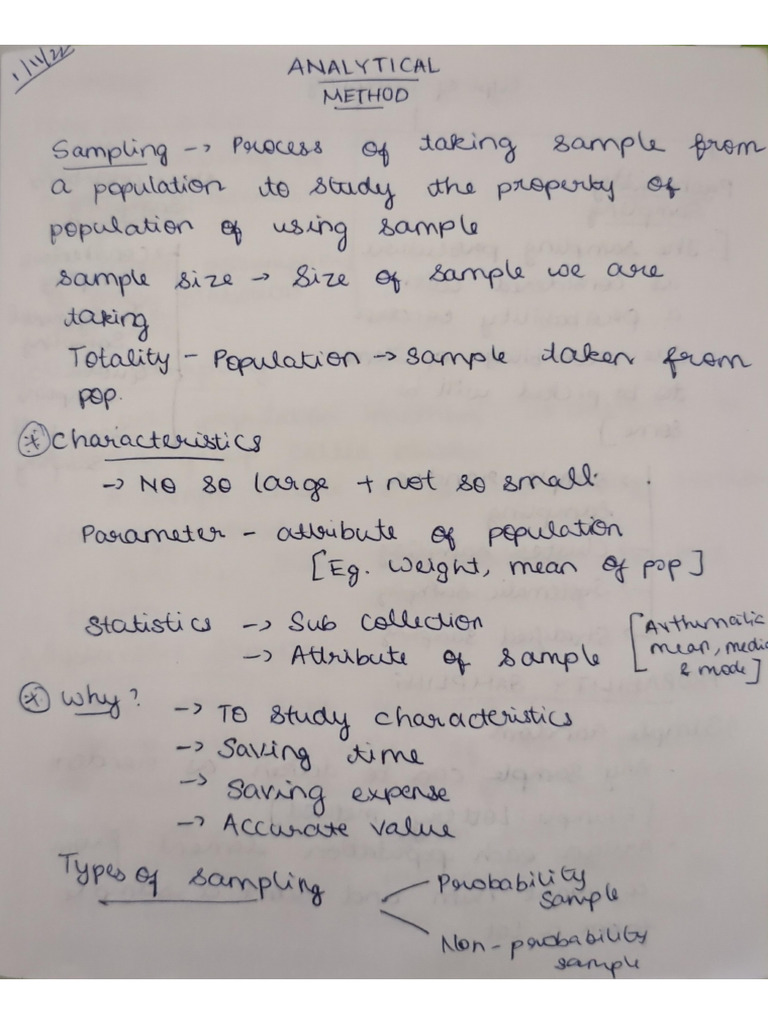 1/11/22
ANALYTICAL
METHOD
Sampling -> Process of taking sample from
a population to study the property of
population of using sample
Sample size -> Size of sample we are
taking
Totality - Population -> sample taken from
pop.
* Characteristics
-> No so large + not so small.
Parameter - attribute of population
[Eg. Weight, mean of pop]
Statistics -> Sub collection
-> Attribute of sample
[Arthematic
mean, media
& mode]
* Why? -> To study characteristics
-> Saving time
-> Saving expense
-> Accurate value
Types of sampling
Probability
sample
Non-probability
sample